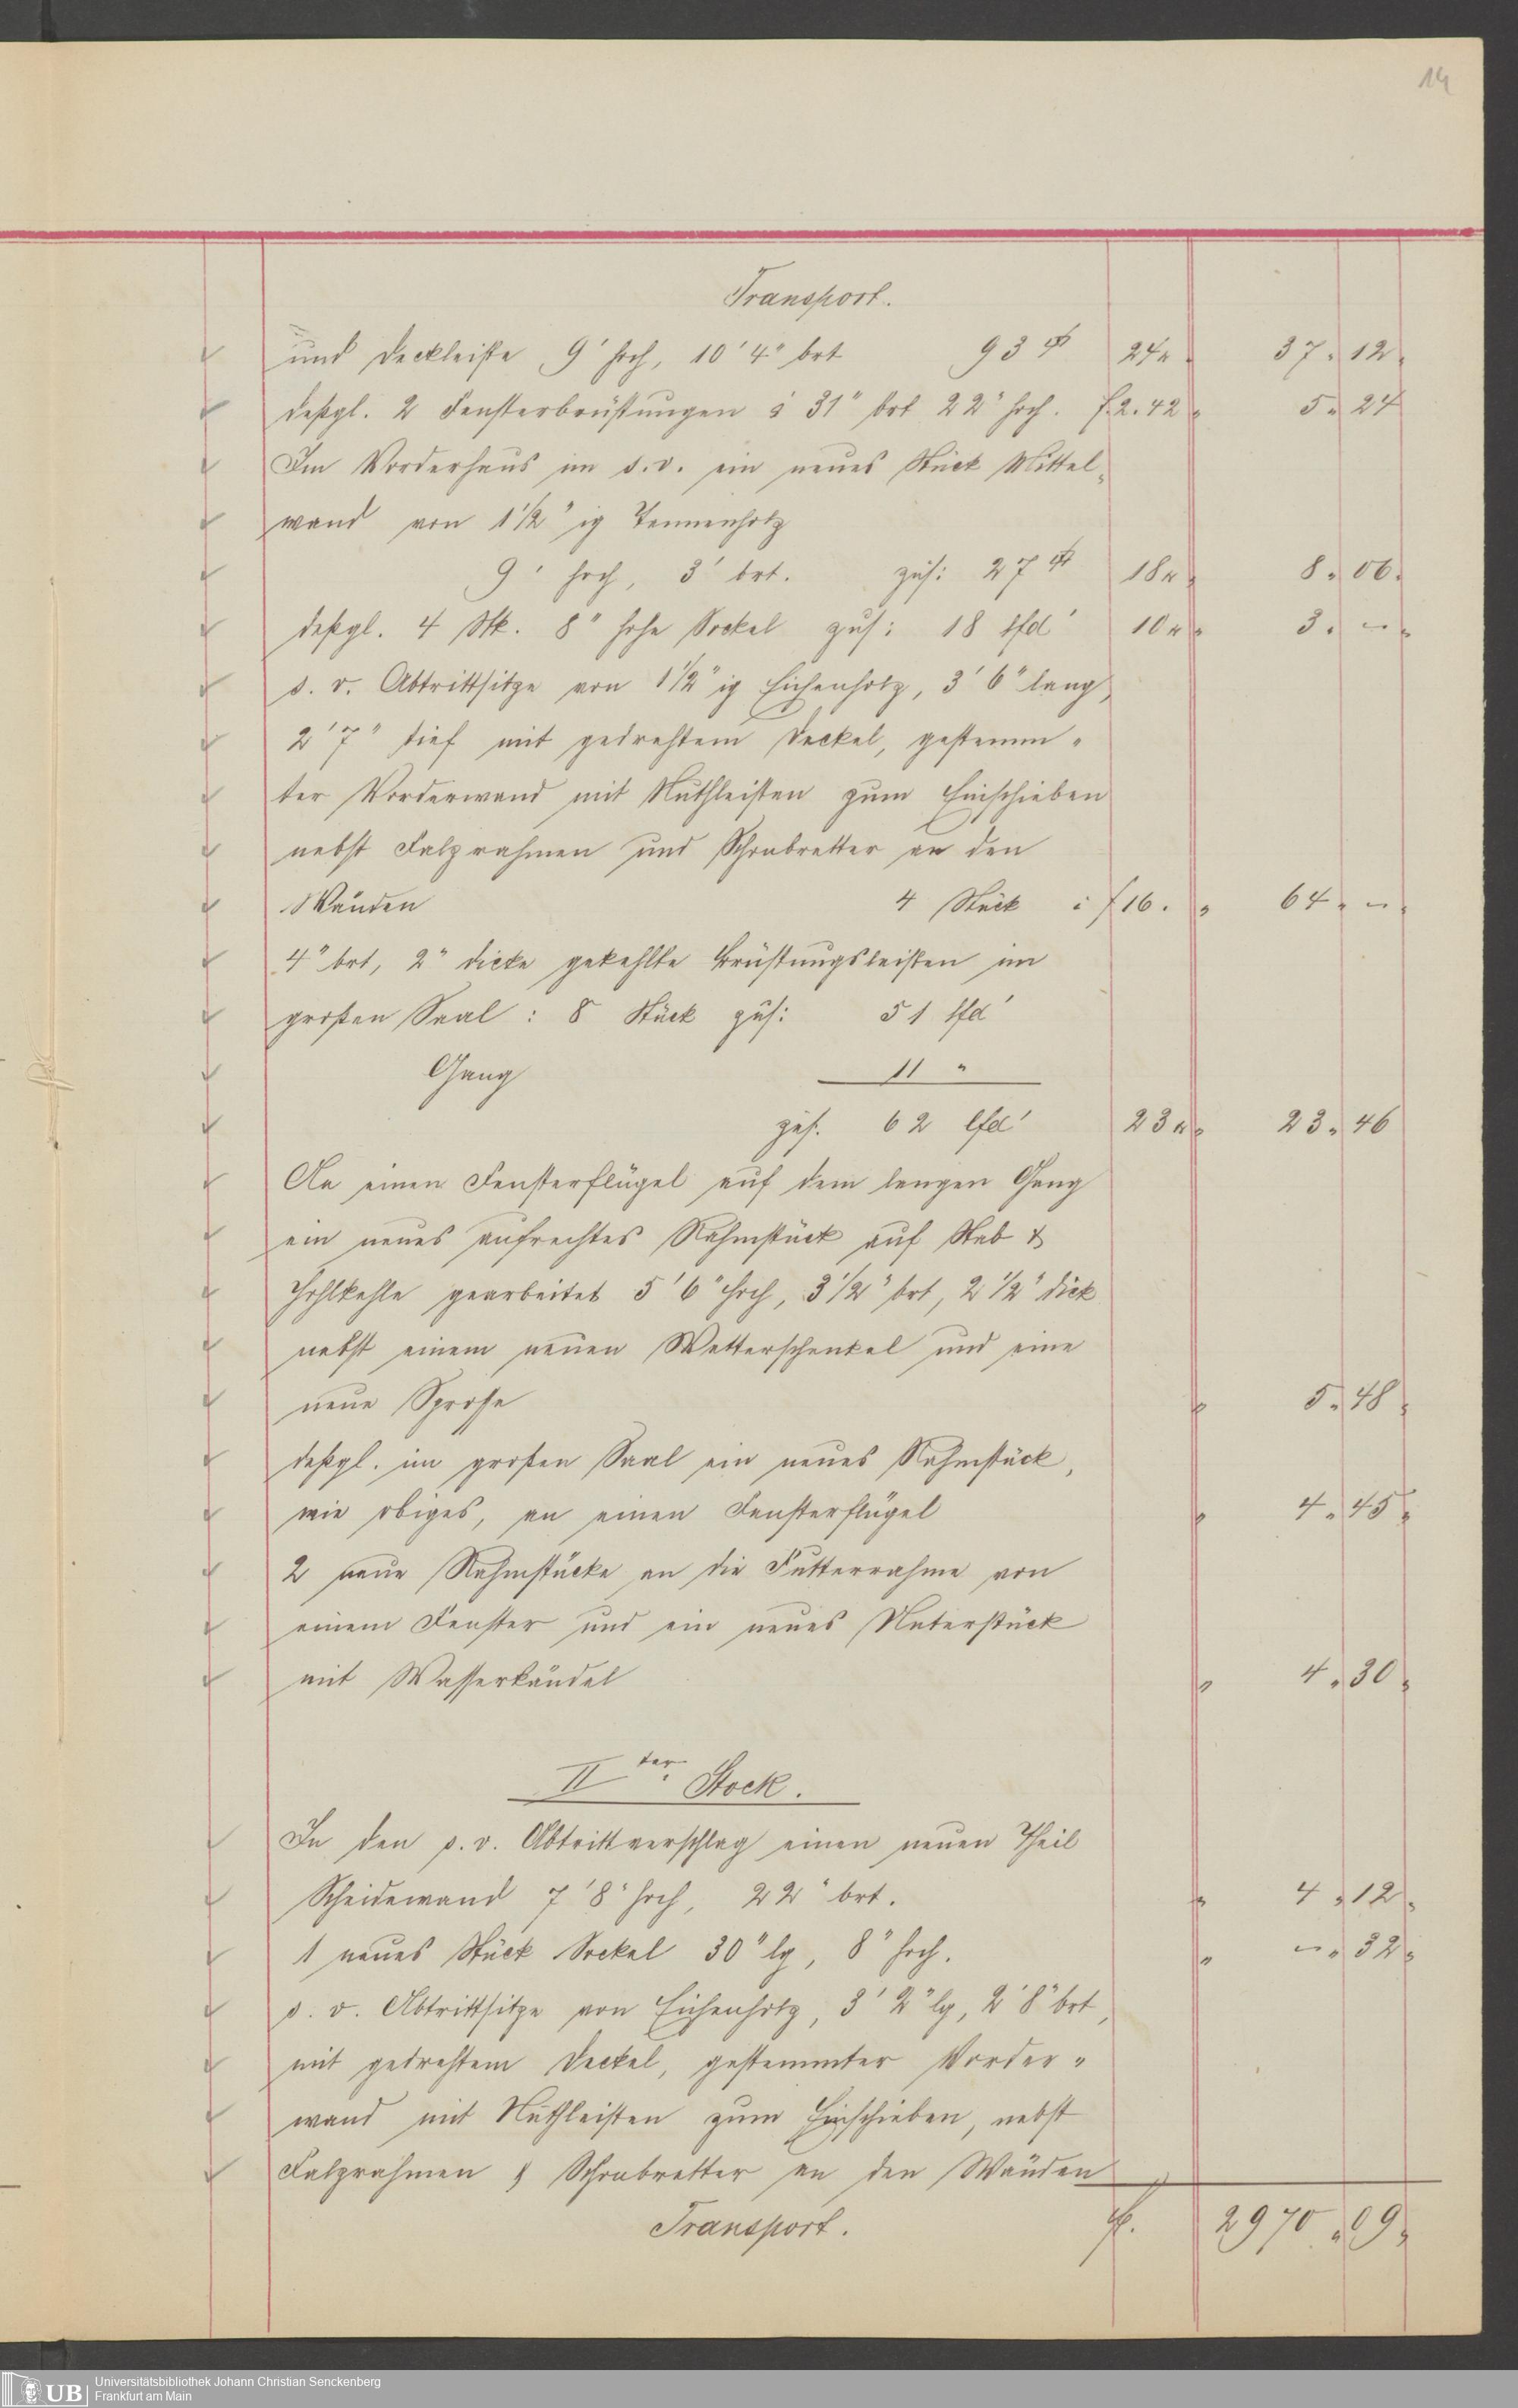 14
Transport.
und Deckleiste 9' hoch, 10' 4" brt 93 □' 24 x 37. 12.
deßgl. 2 Fensterbrüstungen á 31" brt 22" hoch. f. 2. 42 5. 24
Im Vorderhaus im s. v. ein neues Stück Mittel-
wand von 1 1/2" ig Tannenholz
9' hoch, 3' brt. zus: 27 □' 18 x 8. 06.
deßgl. 4 Stk. 8" hohe Sockel zus: 18 lfd' 10 x 3. —
s. v. Abtrittsitze von 1 1/2" ig Eichenholz, 3' 6" lang,
2' 7" tief mit gedrehtem Deckel, gestemm-
ter Vorderwand mit Nuthleisten zum Einschieben
nebst Falzrahmen und Schrabretter an den
Wänden 4 Stück á f 16. „ 64. —.
4" brt, 2" dicke gekehlte Brüstungsleisten im
großen Saal: 8 Stück zus: 51 lfd'
Gang 11 "
zus. 62 lfd' 23 x 23. 46
An einen Fensterflügel auf dem langen Gang
ein neues aufrechtes Rahmstück auf Stab &
Hohlkehle gearbeitet 5' 6" hoch, 3 1/2" brt, 2 1/2" dick
nebst einem neuen Wetterschenkel und eine
neue Sprosse „ 5. 48.
deßgl. im großen Saal ein neues Rahmstück,
wie obiges, an einen Fensterflügel „ 4. 45.
2 neue Rahmstücke an die Futterrahme von
einem Fenster und ein neues Unterstück
mit Wasserkändel „ 4. 30.
II ter Stock.
In den s. v. Abtrittverschlag einen neuen Theil
Scheidewand 7' 8" hoch, 22" brt. „ 4. 12.
1 neues Stück Sockel 30" lg, 8" hoch. „ —. 32.
s. v. Abtrittsitze von Eichenholz, 3' 2" lg, 2' 8" brt,
mit gedrehtem Deckel, gestemmter Vorder-
wand mit Nuthleisten zum Einschieben, nebst
Falzrahmen & Schrabretter an den Wänden
Transport. f. 2970. 09.
UB Universitätsbibliothek Johann Christian Senckenberg
Frankfurt am Main